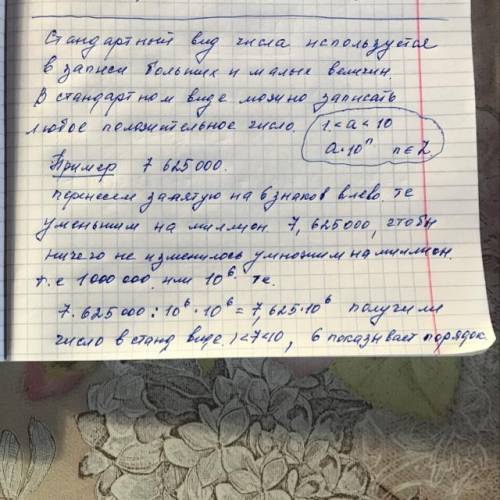 Стандартный вид числа используется
в записи больших и малых величин.
В стандартном виде можно записать
любое положительное число. 1 < a < 10
a·10ⁿ n ∈ Z
Пример 7 625000.
перенесем запятую на 6 знаков влево. те
уменьшим на миллион 7,625000, чтобы
ничего не изменилось умножим на миллион.
т.е 1000 000. или 10⁶ те.
7.625000 : 10⁶ · 10⁶ = 7,625·10⁶ получили
число в станд виде. 1<7<10, 6 показывает порядок.